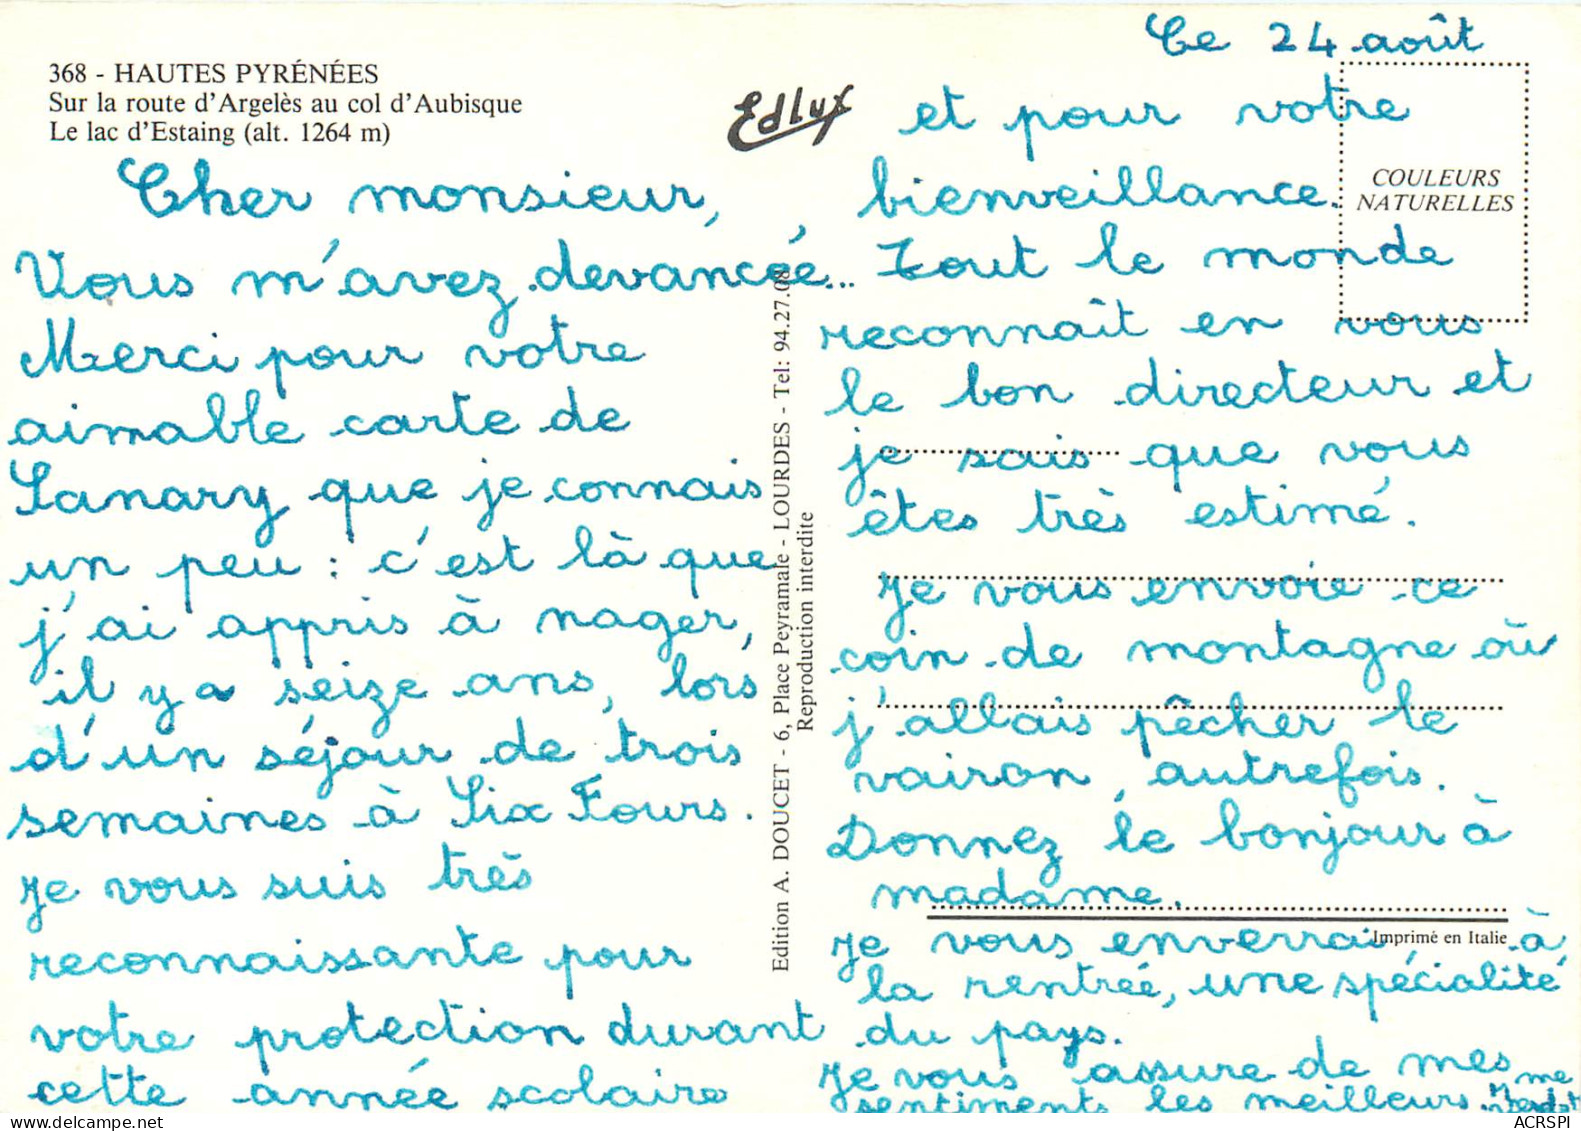 Ce 24 août
368 - HAUTES PYRÉNÉES
Sur la route d'Argelès au col d'Aubisque
Le lac d'Estaing (alt. 1264 m)
Edlux
Cher monsieur,
Vous m'avez devancée...
Merci pour votre
aimable carte de
Sanary que je connais
un peu : c'est là que
j'ai appris à nager,
il y a seize ans, lors
d'un séjour de trois
semaines à Six Fours.
Je vous suis très
reconnaissante pour
votre protection durant
cette année scolaire
Edition A. DOUCET - 6, Place Peyramale - LOURDES - Tel: 94.27.08
Reproduction interdite
COULEURS
NATURELLES
et pour votre
bienveillance.
Tout le monde
reconnaît en vous
le bon directeur et
je sais que vous
êtes très estimé.
Je vous envoie ce
coin de montagne où
j'allais pêcher le
vairon, autrefois.
Donnez le bonjour à
madame.
Imprimé en Italie
Je vous enverrai, à
la rentrée, une spécialité
du pays.
Je vous assure de mes
sentiments les meilleurs.
Mme
ACRSPI